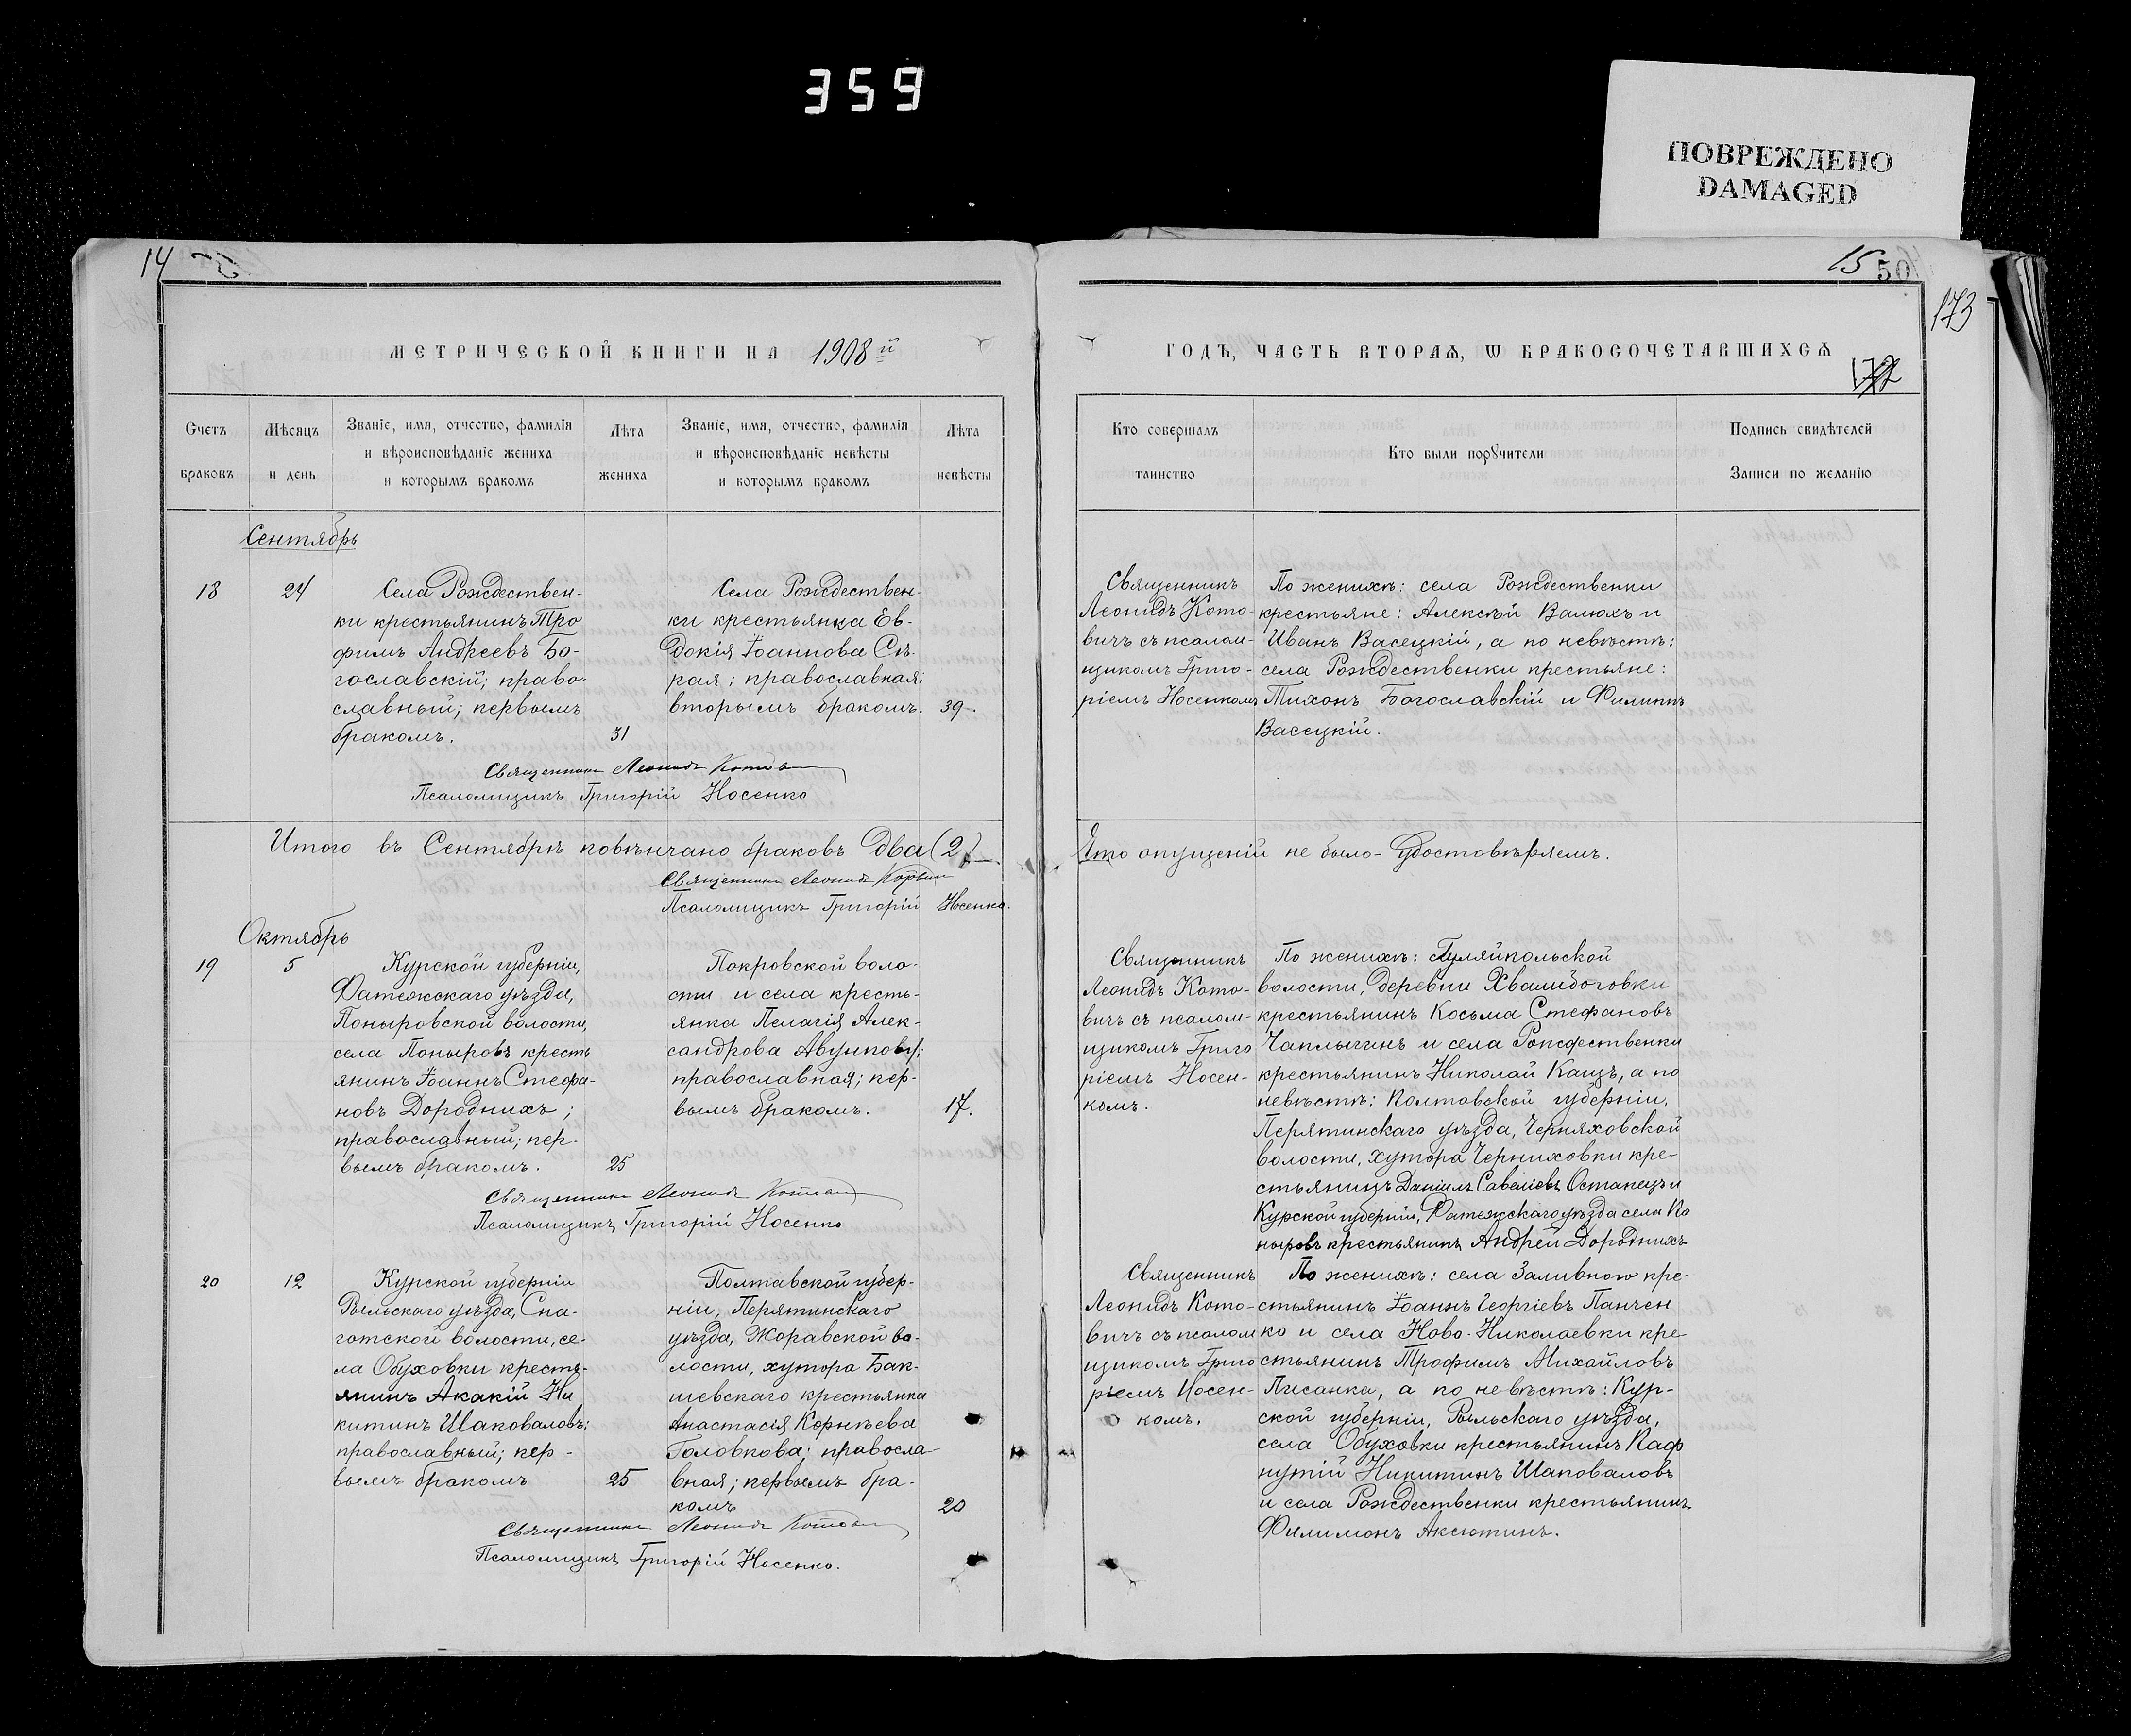 359
ПОВРЕЖДЕНО
DAMAGED
14
15
50
173
МЕТРИЧЕСКОЙ КНИГИ НА 1908й
ГОДЪ, ЧАСТЬ ВТОРАѦ, Ѡ БРАКОСОЧЕТАВШИХСѦ
172
Счетъ браковъ
Мѣсяцъ и день
Званіе, имя, отчество, фамилія
и вѣроисповѣданіе жениха
и которымъ бракомъ
Лѣта жениха
Званіе, имя, отчество, фамилія
и вѣроисповѣданіе невѣсты
и которымъ бракомъ
Лѣта невѣсты
Кто совершалъ таинство
Кто были порꙋчители
Подпись свидѣтелей
Записи по желанію
Сентябрь
18
24
Села Рождествен-
ки крестьянинъ Тро
фимъ Андреевъ Бо-
гославскій; право-
славный; первымъ
бракомъ.
31
Села Рождествен-
ки крестьянка Ев-
докія Іоаннова Сѣ-
рая; православная;
вторымъ бракомъ.
39.
Священникъ
Леонидъ Кото-
вичъ съ псалом-
щикомъ Григо-
ріемъ Носенкомъ
По женихѣ: села Рождественки
крестьяне: Алексѣй Валюхъ и
Иванъ Васецкій, а по невѣстѣ:
села Рождественки крестьяне:
Тихонъ Богославскій и Филиппъ
Васецкій.
Священникъ Леонидъ Котович
Псаломщикъ Григорій Носенко
Итого въ Сентябрѣ повѣнчано браковъ Два (2)
Что опущеній не было - Удостовѣряемъ.
Священникъ Леонидъ Котович
Псаломщикъ Григорій Носенко.
Октябрь
19
5
Курской губерніи,
Фатежскаго уѣзда,
Поныровской волости,
села Поныровъ кресть
янинъ Іоаннъ Стефа-
новъ Дородныхъ;
православный; пер-
вымъ бракомъ.
25
Покровской воло-
сти и села кресть-
янка Пелагія Алек-
сандрова
православная; пер-
вымъ бракомъ.
17.
Священникъ
Леонидъ Кото-
вичъ съ псалом-
щикомъ Григо
ріемъ Носен-
комъ.
По женихѣ: Гуляйпольской
волости, деревни Хвалибоговки
крестьянинъ Косьма Стефановъ
Чаплыгинъ и села Рождественки
крестьянинъ Николай Кацъ, а по
невѣстѣ: Полтавской губерніи,
Перятинскаго уѣзда, Черняховской
волости, хутора Черниховки кре-
стьянинъ Даніилъ Савеліевъ Останецъ и
Курской губерніи, Фатежскаго уѣзда села По
ныровъ крестьянинъ Андрей Дородныхъ
Священникъ Леонидъ Котович
Псаломщикъ Григорій Носенко
20
12
Курской губерніи
Рыльскаго уѣзда, Сна-
готской волости, се-
ла Обуховки кресть-
янинъ Акакій Ни
китинъ Шаповаловъ;
православный; пер-
вымъ бракомъ
25
Полтавской губер-
ніи, Перятинскаго
уѣзда, Жоравской во-
лости, хутора Бак-
шевскаго крестьянка
Анастасія Корнѣева
Головкова; правосла-
вная; первымъ бра-
комъ
20
Священникъ
Леонидъ Кото-
вичъ съ псалом
щикомъ Григо
ріемъ Носен-
комъ.
По женихѣ: села Заливного кре-
стьянинъ Іоаннъ Георгіевъ Панчен
ко и села Ново-Николаевки кре-
стьянинъ Трофимъ Михайловъ
Писанка, а по невѣстѣ: Кур-
ской губерніи, Рыльскаго уѣзда,
села Обуховки крестьянинъ Паф
нутій Никитинъ Шаповаловъ
и села Рождественки крестьянинъ
Филимонъ Аксютинъ.
Священникъ Леонидъ Котович
Псаломщикъ Григорій Носенко.